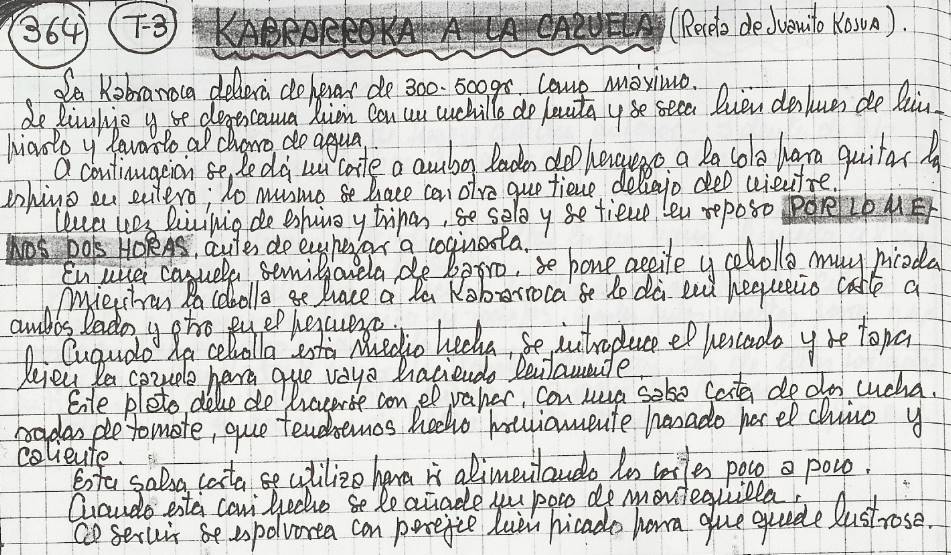 364 T-3 KABRARROKA A LA CAZUELA (Receta de Juanito Kosua).
La Kabraroca deberá de pesar de 300-500gr. como máximo.
Se limpia y se desescama bien con un cuchillo de punta y se seca bien despues de lim-
piarlo y lavarlo al chorro de agua.
A continuación se le dá un corte a ambos lados del pescuezo a la cola para quitar la
espina en entero; lo mismo se hace con otra que tiene debajo del vientre.
Una vez limpio de espina y tripas, se sala y se tiene en reposo POR LO ME-
NOS DOS HORAS, antes de empezar a cocinarla.
En una cazuela semihonda de barro, se pone aceite y cebolla muy picada
Mientras la cebolla se hace a la Kabrarroca se le dá un pequeño corte a
ambos lados y otro en el pescuezo.
Cuando la cebolla está medio hecha, se introduce el pescado y se tapa
bien la cazuela para que vaya haciendo lentamente.
Este plato debe de hacerse con el vapor, con una salsa corta de dos cucha.
radas de tomate, que tendremos hecho previamente pasado por el chino y
caliente.
Esta salsa corta se utiliza para ir alimentando los cortes poco a poco.
Cuando está casi hecho se le añade un poco de mantequilla.
Al servir se espolvorea con perejil bien picado para que quede lustrosa.